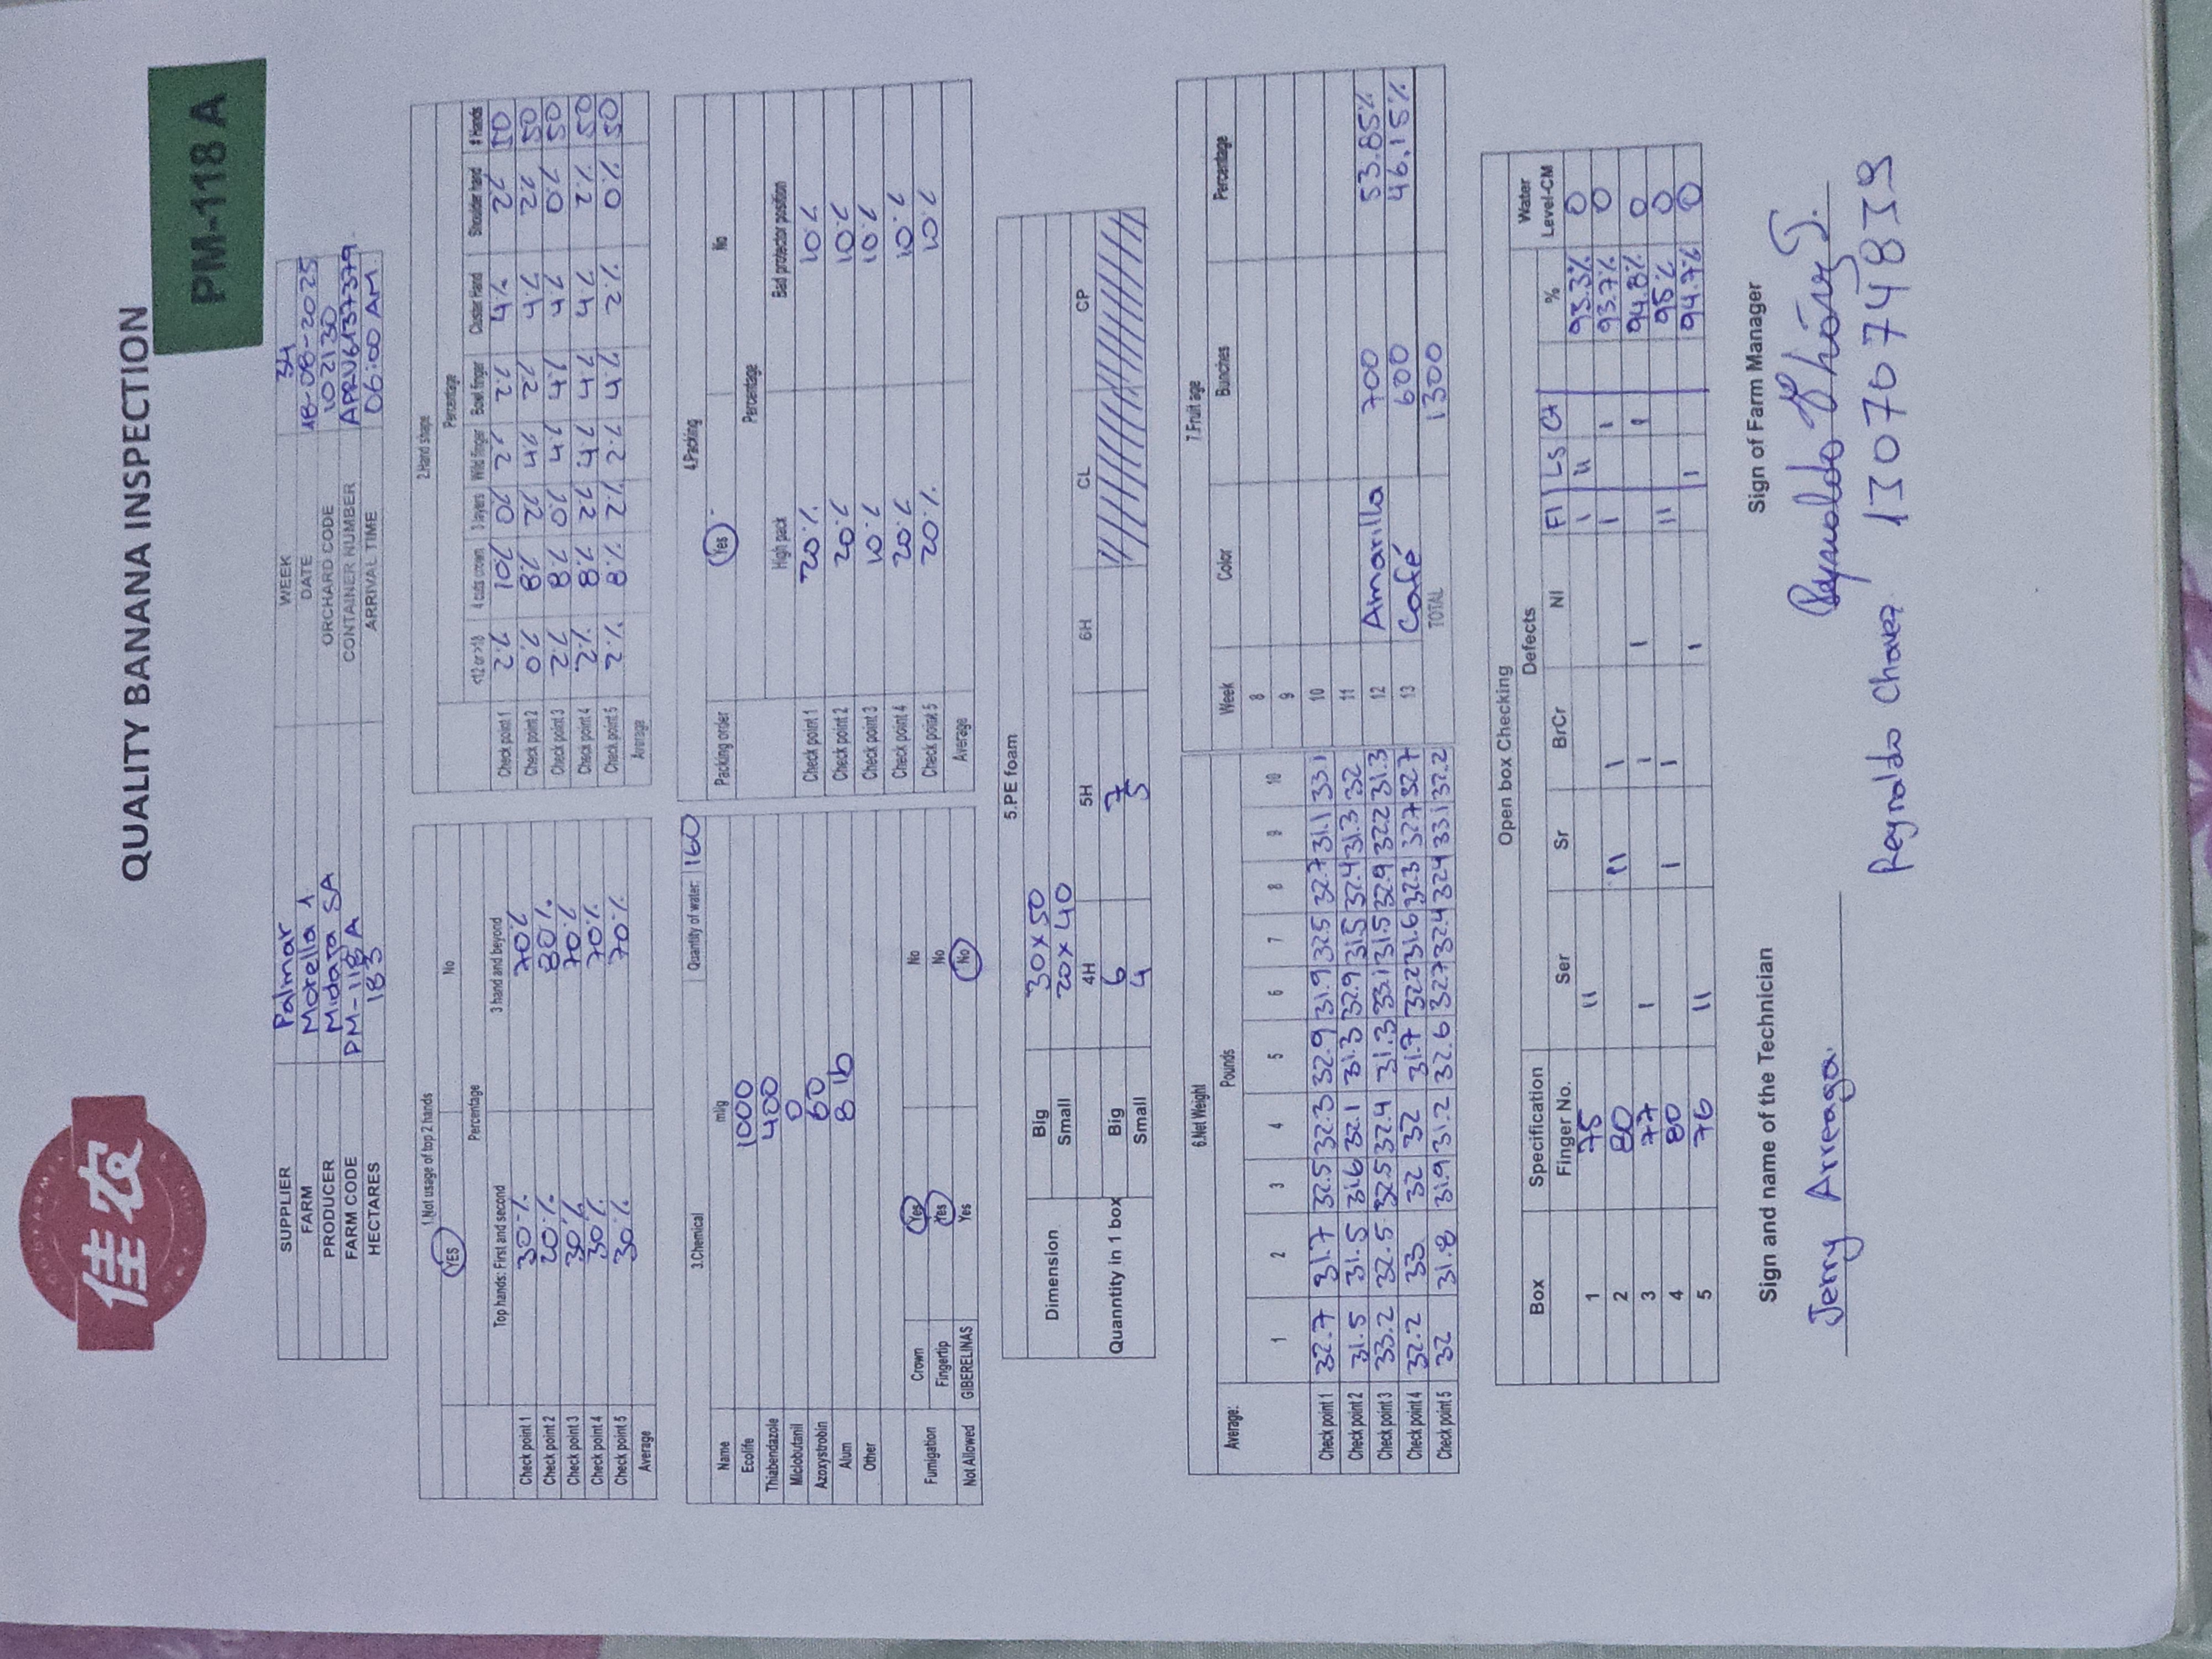 佳农
QUALITY BANANA INSPECTION
PM-118 A
SUPPLIER Palmar WEEK 34
FARM Morella 1 DATE 18-08-2025
PRODUCER Midaja SA ORCHARD CODE 102130
FARM CODE PM-118 A CONTAINER NUMBER APRU6137379
HECTARES 183 ARRIVAL TIME 06:00 AM
1.Not usage of top 2 hands
YES No
Percentage
Top hands: First and second 3 hand and beyond
Check point 1 30% 70%
Check point 2 20% 80%
Check point 3 30% 70%
Check point 4 30% 70%
Check point 5 30% 70%
Average
2.Hand shape
Percentage
<12 or >18 4 cuts crown 3 layers Wild finger Bowl finger Cluster Hand Shoulder hand # Hands
Check point 1 2% 10% 0% 2% 2% 4% 2% 50
Check point 2 0% 8% 2% 4% 2% 4% 2% 50
Check point 3 2% 8% 0% 4% 4% 4% 0% 50
Check point 4 2% 8% 2% 4% 4% 4% 2% 50
Check point 5 2% 8% 2% 2% 4% 2% 0% 50
Average
3.Chemical Quantity of water: 160
Name ml/g
Ecolife 1000
Thiabendazole 400
Miclobutanil 0
Azoxystrobin 60
Alum 8 lb
Other
Fumigation Crown Yes No
Fingertip Yes No
Not Allowed GIBERELINAS Yes No
4.Packing
Packing order Yes No
Percentage
High pack Bad protector position
Check point 1 20% 10%
Check point 2 20% 10%
Check point 3 10% 10%
Check point 4 20% 10%
Check point 5 20% 10%
Average
5.PE foam
Dimension Big 30x50
Small 20x40
4H 5H 6H CL CP
Quanntity in 1 box Big 6 7
Small 4 5
6.Net Weight
Average: Pounds
1 2 3 4 5 6 7 8 9 10
Check point 1 32.7 31.7 32.5 32.3 32.9 31.9 32.5 32.7 31.1 33.1
Check point 2 31.5 31.5 31.6 32.1 31.3 32.9 31.5 32.4 31.3 32
Check point 3 33.2 32.5 32.5 32.4 31.3 33.1 31.5 32.9 32.2 31.3
Check point 4 32.2 33 32 32 31.7 32.2 31.6 32.3 32.7 32.7
Check point 5 32 31.8 31.9 31.2 32.6 32.7 32.4 32.4 33.1 32.2
7.Fruit age
Week Color Bunches Percentage
8
9
10
11
12 Amarilla 700 53.85%
13 Café 600 46.15%
TOTAL 1300
Open box Checking
Box Specification Defects Water
Finger No. Ser Sr BrCr NI Fl Ls Ct % Level-CM
1 75 II I II 93.3% 0
2 80 II I I I 93.7% 0
3 77 I I I I 94.8% 0
4 80 I I II 95% 0
5 76 II I I 94.7% 0
Sign and name of the Technician Sign of Farm Manager
Jerry Arreaga. Reynaldo Chávez T.
Reynaldo Chavez 1307074839